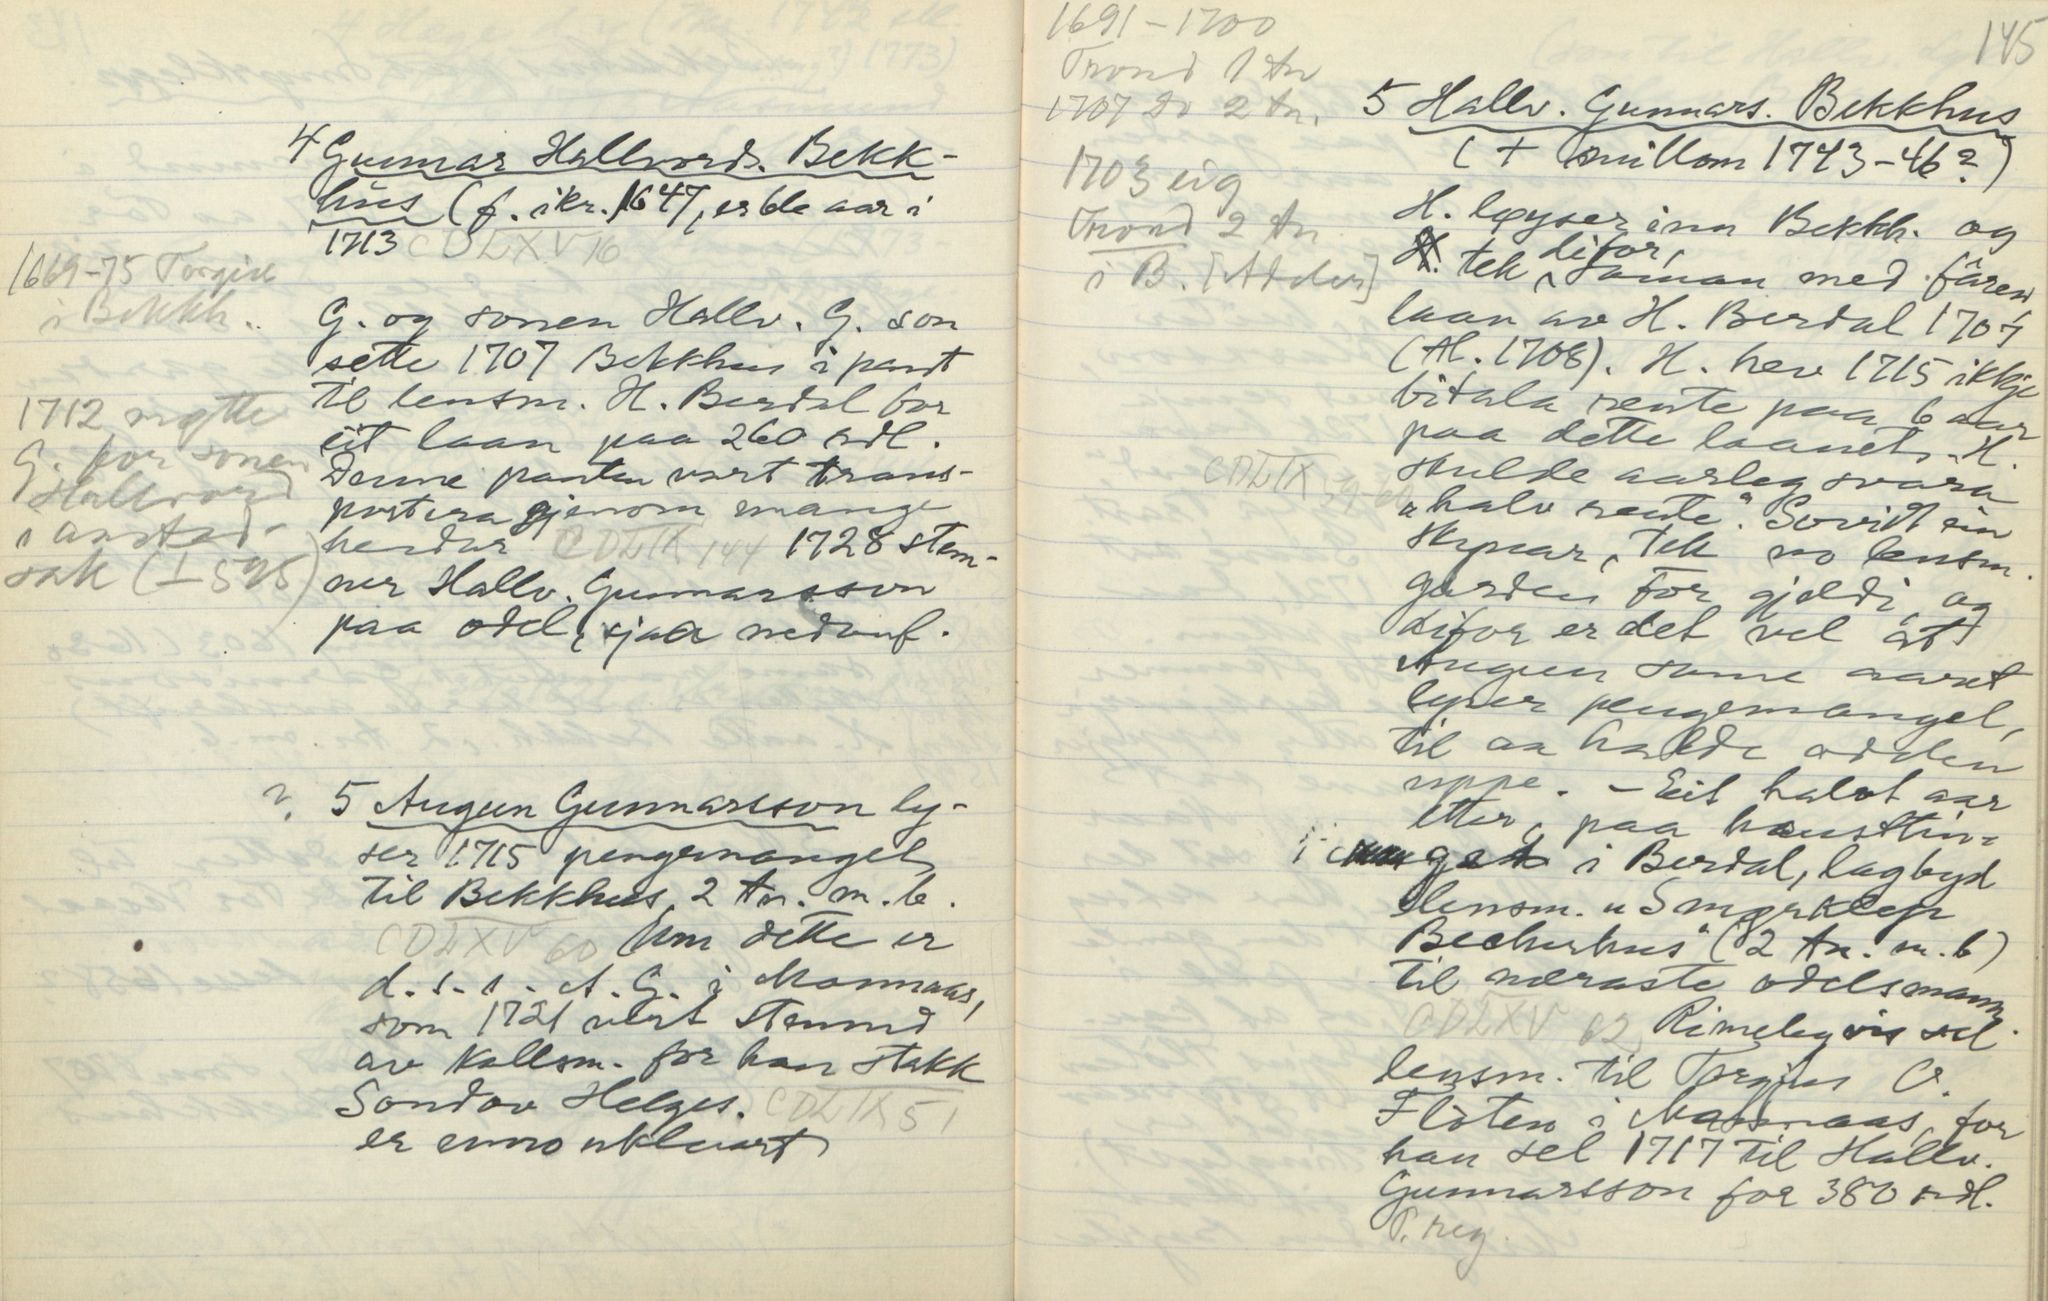 4 Gunnar Hallvords. Bekk-
hus (f. ikr. 1647, er 66 aar i
1713 CDLXV 76
1669-75 Torgius
i Bekkh.
G. og sonen Hallv. G. son
sette 1707 Bekkhus i pant
til lensm. H. Berdal for
eit laan paa 260 rdl.
Denne panten vart trans-
portera gjenom mange
hendur CDLIX 144 1728 stem-
ner Hallv. Gunnarsson
paa odel, sjaa nedanf.
1712 møtte
G. for sonen
Hallvord
i aasted-
sak (I 595)
? 5 Augun Gunnarsson ly-
ser 1715 pengemangel
til Bekkhus, 2 tn. m. b.
CDLXV 60 Um dette er
d. s. s. A. G. i Mannaas,
som 1721 vert stemnd
av kallsm. for han stakk
Sondov Helges. CDLIX 51
er enno uklaart
145
1691-1700
Trond 1 tn
1707 do 2 tn.
1703 eig
Trond 2 tn
i B. [Adelus]
5 Hallv. Gunnars. Bekkhus
(+ millom 1743-46?)
H. løyser inn Bekkh. og
H. tek difor, saman med faren
laan av H. Berdal 1707
(Al. 1708). H. hev 1715 ikkje
bitala rente paa 6 aar
paa dette laanet. H.
skulde aarleg svara
"halv rente". Sovidt ein
skynar, tek no lensm.
garden for gjeldi, og
difor er det vel at
Augun same aaret
lyser pengemangel,
til aa halde odelen
uppe. - Eit halvt aar
etter, paa hausttin-
get i Berdal, lagbyd
lensm. "Smørklepp
Becherhus" (2 tn. m. b)
til næraste odelsmann.
CDLXV 62, Rimelegvis sel
lensm. til Torgjus O.
Fløten i Mannaas, for
han sel 1717 til Hallv.
Gunnarsson for 380 rdl.
T. reg.
CDLIX 59-60